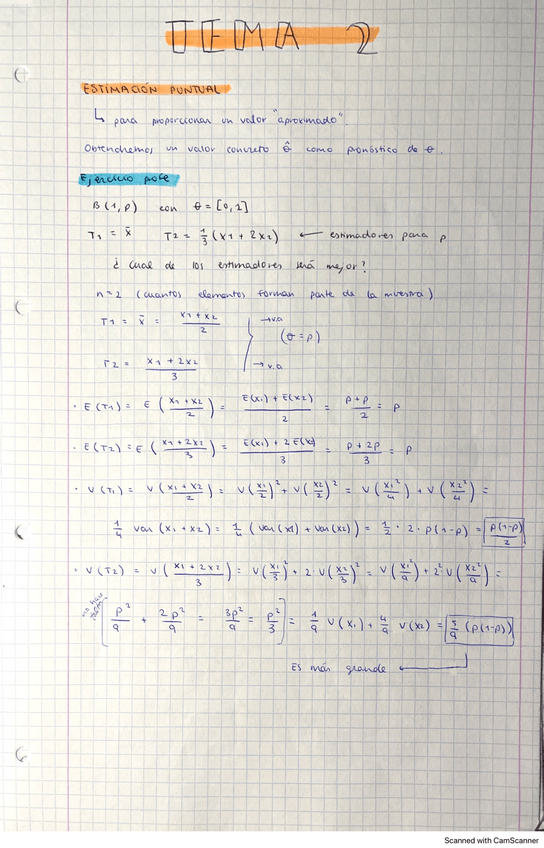 TEMA 2
ESTIMACIÓN PUNTUAL
↳ para proporcionar un valor "aproximado".
Obtendremos un valor concreto θ̂ como pronóstico de θ.
Ejercicio
B(1,p) con θ = [0,1]
T1 = x̄ T2 = 1/3 (x1 + 2x2) ← estimadores para p
¿ cual de los estimadores será mejor?
n=2 (cuantos elementos forman parte de la muestra)
T1 = x̄ = (x1 + x2)/2 → v.a
(θ = p)
T2 = (x1 + 2x2)/3 → v.a
· E(T1) = E((x1 + x2)/2) = (E(x1) + E(x2))/2 = (p + p)/2 = p
· E(T2) = E((x1 + 2x2)/3) = (E(x1) + 2E(x2))/3 = (p + 2p)/3 = p
· V(T1) = V((x1 + x2)/2) = V(x1/2)² + V(x2/2)² = V(x1²/4) + V(x2²/4) =
1/4 var(x1 + x2) = 1/4 (var(x1) + var(x2)) = 1/2 · 2 · p(1-p) = p(1-p)/2
· V(T2) = V((x1 + 2x2)/3) = V(x1/3)² + 2·V(x2/3)² = V(x1²/9) + 2²V(x2²/9) =
[p²/9 + 2p²/9 = 3p²/9 = p²/3] = 1/9 V(x1) + 4/9 V(x2) = 5/9 (p(1-p))
Es más grande ←
Scanned with CamScanner